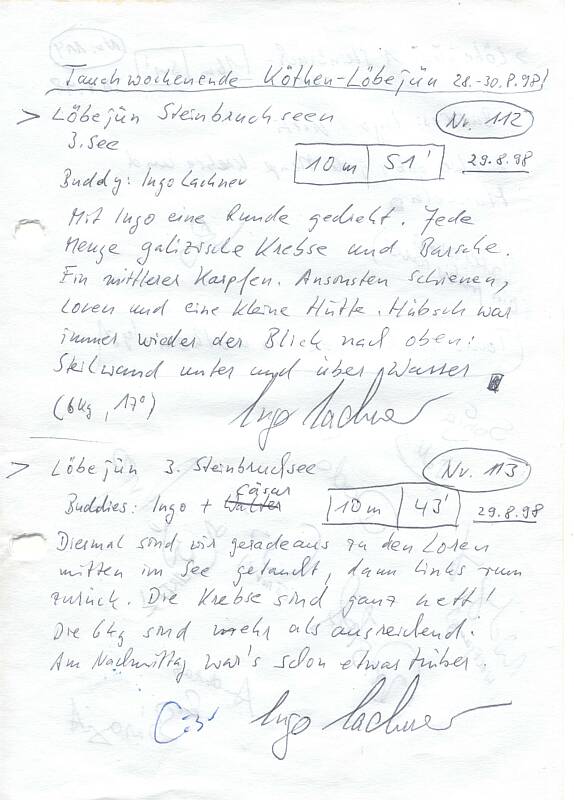 Tauchwochenende Köthen-Löbejün 28.-30.8.98
> Löbejün Steinbruchseen Nr. 112
3. See 10 m 51' 29.8.98
Buddy: Ingo Lachner
Mit Ingo eine Runde gedreht. Jede
Menge galizische Krebse und Barsche.
Ein mittlerer Karpfen. Ansonsten Schienen,
Loren und eine kleine Hütte. Hübsch war
immer wieder der Blick nach oben:
Steilwand unter und über Wasser
(6kg, 17°) Ingo Lachner
> Löbejün 3. Steinbruchsee Nr. 113
Cäsar
Buddies: Ingo + Walter 10 m 43' 29.8.98
Diesmal sind wir geradeaus zu den Loren
mitten im See getaucht, dann links rum
zurück. Die Krebse sind ganz nett!
Die 6kg sind mehr als ausreichend.
Am Nachmittag war's schon etwas trüber.
Ingo Lachner